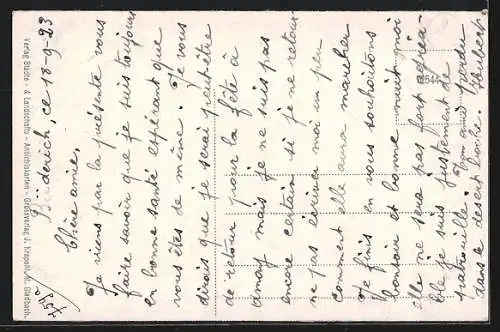 Büderich, ce 18-9-23
Chère amie,
Je viens par la présente vous
faire savoir que je suis toujours
en bonne santé espérant que
vous êtes de même. Je vous
dirais que je serai peut-être
de retour pour la fête à
Amay mais je ne suis pas
encore certain si je ne retour
pas écrivez moi un peu
comment elle aura marcher
Je finis en vous souhaitons
bonsoir et bonne nuit moi
elle ne sera pas fort agréa-
ble je suis justement de
patrouille. Ton ami perdu
dans le desert boche. Hubert
Verlag Stadie- & Landschafts-Ansichtskarten - Grossverlag J.